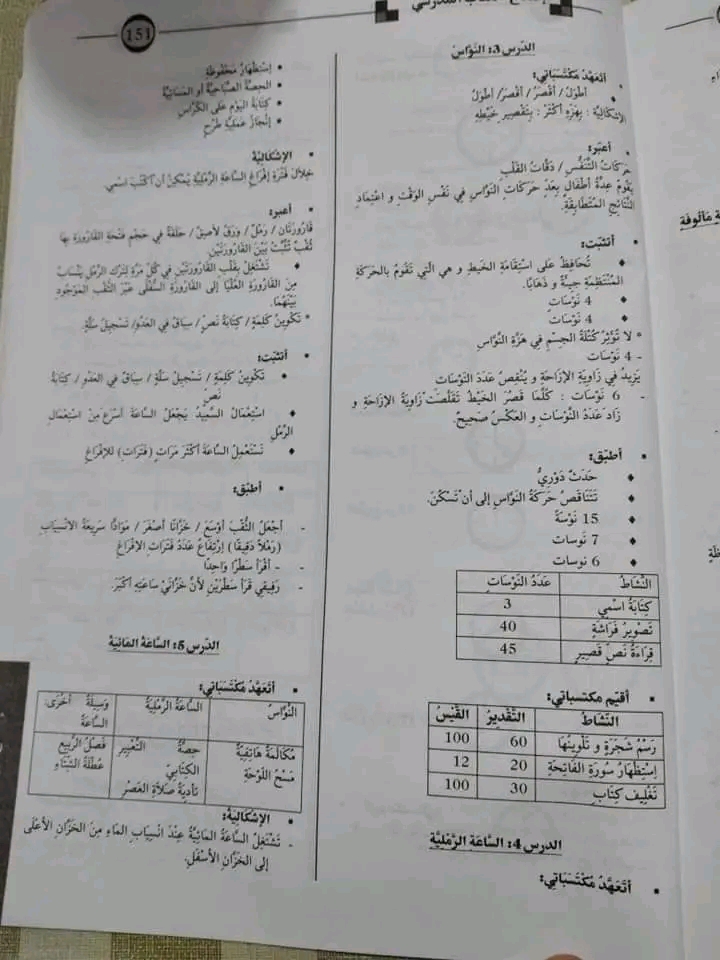 151
الدرس 3: النَوَّاسُ
• أتَعَهَّد مُكْتَسَبَاتِي:
أطوَلُ/ أقْصَرُ/ أقْصَرُ/ أطوَلُ
الإشْكَاليَّة: بِهَزِّهِ أكْثَرَ: بِتَقْصِيرِ خَيْطِهِ
• أعبر:
حَرَكَاتُ التَّنَفُّسِ / دَقَّاتُ القَلْبِ
يَقُومُ عِدَّةُ أطْفَالٍ بِعَدِّ حَرَكَاتِ النَّوَّاسِ فِي نَفْسِ الوَقْتِ و اعْتِمَادِ
النَّتَائِجِ المُتَطَابِقَةِ.
• أتَثَبَّت:
♦ نُحَافِظُ عَلَى اسْتِقَامَةِ الخَيْطِ و هِيَ الَّتِي تَقُومُ بِالحَرَكَةِ
المُنْتَظِمَةِ جِيئَةً و ذَهَابًا.
♦ 4 نَوْسَات
♦ 4 نَوْسَات
* لا تُؤَثِّرُ كُتْلَةُ الجِسْمِ فِي هَزَّةِ النَّوَّاسِ
- 4 نَوْسَات
يَزِيدُ فِي زَاوِيَةِ الإزَاحَةِ و يُنْقِصُ عَدَدَ النَّوْسَاتِ
- 6 نَوْسَات : كُلَّمَا قَصُرَ الخَيْطُ تَقَلَّصَتْ زَاوِيَةُ الإزَاحَةِ و
زَادَ عَدَدُ النَّوْسَاتِ و العَكْسُ صَحِيحٌ.
• أطبق:
♦ حَدَثٌ دَوْرِيٌّ
♦ تَتَنَاقَصُ حَرَكَةُ النَّوَّاسِ إلى أن تَسْكُنَ.
♦ 15 نَوْسَةً
♦ 7 نَوسات
♦ 6 نوسات
النَّشَاطُ عَدَدُ النَّوْسَاتِ
كِتَابَةُ اسْمِي 3
تَصْوِيرُ فَرَاشَةٍ 40
قِرَاءَةُ نَصٍّ قَصِيرٍ 45
• أقيّم مكتسباتي:
النَّشَاطُ التَّقْدِيرُ القَيْسُ
رَسْمُ شَجَرَةٍ و تَلْوِينُهَا 60 100
اِسْتِظْهَارُ سُورَةِ الفَاتِحَةِ 20 12
تَغْلِيفُ كِتَابٍ 30 100
الدرس 4: السَّاعَةُ الرَّمْلِيَّةُ
• أتَعَهَّدُ مُكْتَسَبَاتِي:
• اِسْتِظْهَارُ مَحْفُوظَةٍ
• الحِصَّةُ الصَّبَاحِيَّةُ أو المَسَائِيَّةُ
• كِتَابَةُ اليَوْمِ عَلَى الكُرَّاسِ
• إنْجَازُ عَمَلِيَّةِ طَرْحٍ
• الإشْكَالِيَّة
خِلالَ فَتْرَةِ إفْرَاغِ السَّاعَةِ الرَّمْلِيَّةِ يُمْكِنُ أن أكْتُبَ اسْمِي.
• أعبر:
قَارُورَتَانِ / رَمْلٌ / وَرَقٌ لاَصِقٌ / حَلَقَةٌ فِي حَجْمِ فَتْحَةِ القَارُورَةِ بِهَا
ثُقْبٌ تُثَبَّتُ بَيْنَ القَارُورَتَيْنِ
♦ تَشْتَغِلُ بِقَلْبِ القَارُورَتَيْنِ فِي كُلِّ مَرَّةٍ لِتَرْكِ الرَّمْلِ يَنْسَابُ
مِنَ القَارُورَةِ العُلْيَا إلَى القَارُورَةِ السُّفْلَى عَبْرَ الثُّقْبِ المَوْجُودِ
بَيْنَهُمَا.
* تَكْوِينُ كَلِمَةٍ / كِتَابَةُ نَصٍّ / سِبَاقٌ فِي العَدْوِ/ تَسْجِيلُ سَلَّةٍ.
• أتثبت:
• تَكْوِينُ كَلِمَةٍ / تَسْجِيلُ سَلَّةٍ / سِبَاقٌ فِي العَدْوِ / كِتَابَةُ
نَصٍّ
♦ اسْتِعْمَالُ السَّمِيدِ يَجْعَلُ السَّاعَةَ أسْرَعَ مِنَ اسْتِعْمَالِ
الرَّمْلِ
♦ نَسْتَعْمِلُ السَّاعَةَ أكْثَرَ مَرَّاتٍ (فَتَرَاتٍ) لِلإفْرَاغِ
• أطبق:
- أجْعَلُ الثُّقْبَ أوْسَعَ / خَزَّانًا أصْغَرَ / مَوَادًّا سَرِيعَةَ الانْسِيَابِ
(رَمْلاً دَقِيقًا) اِرْتِفَاعُ عَدَدِ فَتَرَاتِ الإفْرَاغِ
- - أقْرَأُ سَطْرًا وَاحِدًا
- رَفِيقِي قَرَأَ سَطْرَيْنِ لأنَّ خَزَّانَيْ سَاعَتِهِ أكْبَرُ.
الدرس 5: السَّاعَةُ المَائِيَّةُ
• أتَعَهَّدُ مُكْتَسَبَاتِي:
النَّوَّاسُ السَّاعَةُ الرَّمْلِيَّةُ وَسِيلَةٌ أخْرَى:
السَّاعَةُ
مُكَالَمَةٌ هَاتِفِيَّةٌ حِصَّةُ التَّعْبِيرِ فَصْلُ الرَّبِيعِ
مَسْحُ اللَّوْحَةِ الكِتَابِيِّ عُطْلَةُ الشِّتَاءِ
تَأدِيَةُ صَلاَةِ العَصْرِ
• الإشْكَالِيَّةُ:
- تَشْتَغِلُ السَّاعَةُ المَائِيَّةُ عِنْدَ انْسِيَابِ المَاءِ مِنَ الخَزَّانِ الأعْلَى
إلَى الخَزَّانِ الأسْفَلِ.